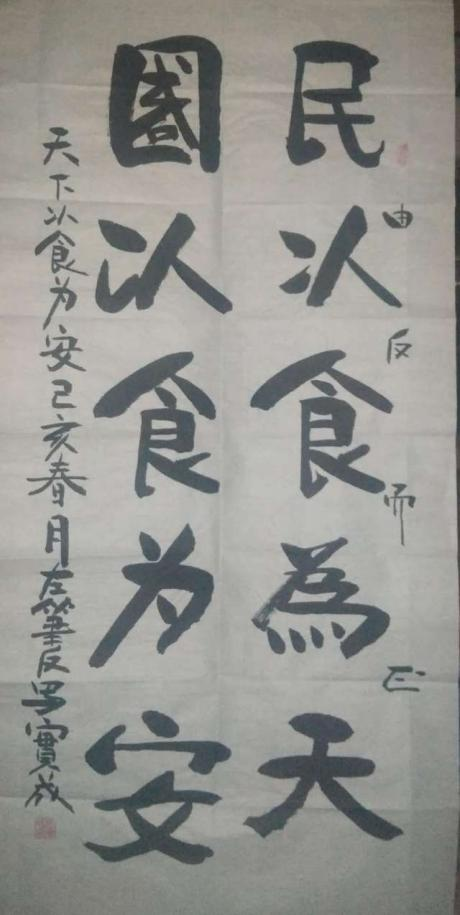 民以食為天
由反而正
國以食为安
天下以食为安己亥春月左筆反写實成